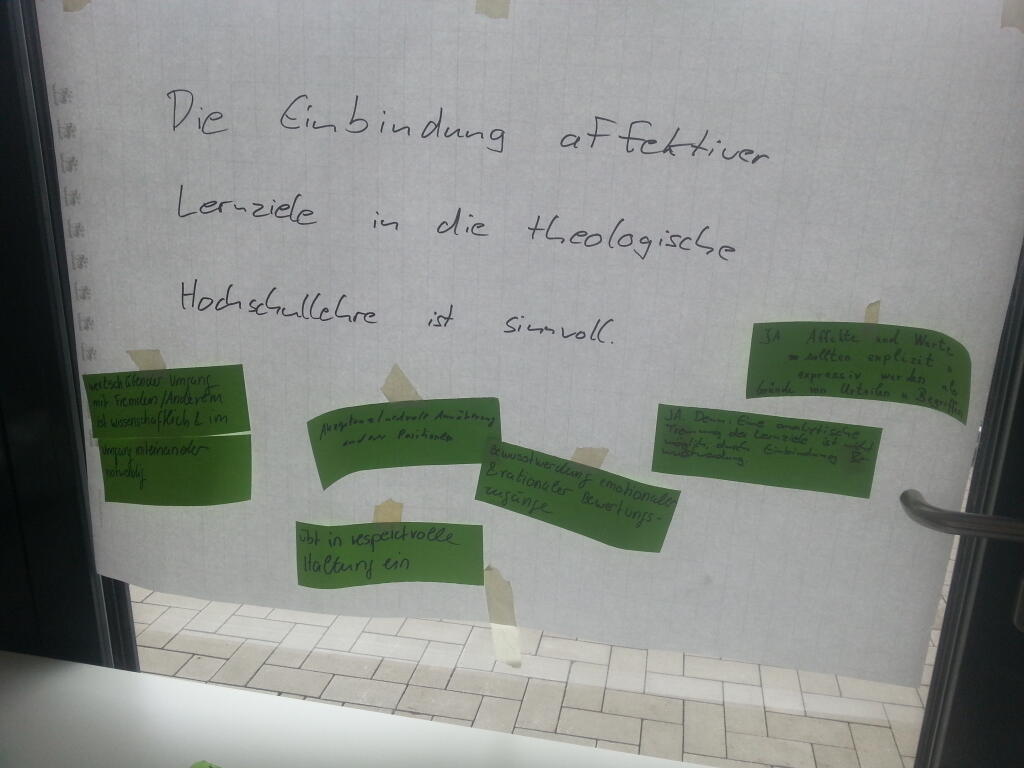 Die Einbindung affektiver
Lernziele in die theologische
Hochschullehre ist sinnvoll.
wertschätzender Umgang
mit Fremden/Anderem
ist wissenschaftlich & im
Umgang miteinander
notwendig
Akzeptanz/
anderer Positionen
übt in respektvolle
Haltung ein
Bewusstwerdung emotionaler
& rationaler Bewertungs-
zugänge
JA. Denn: Eine analytische
Trennung der Lernziele ist
möglich, durch Einbindung
JA Affekte und Werte
sollten explizit u.
expressiv werden als
Gründe von Urteilen u. Begriffen